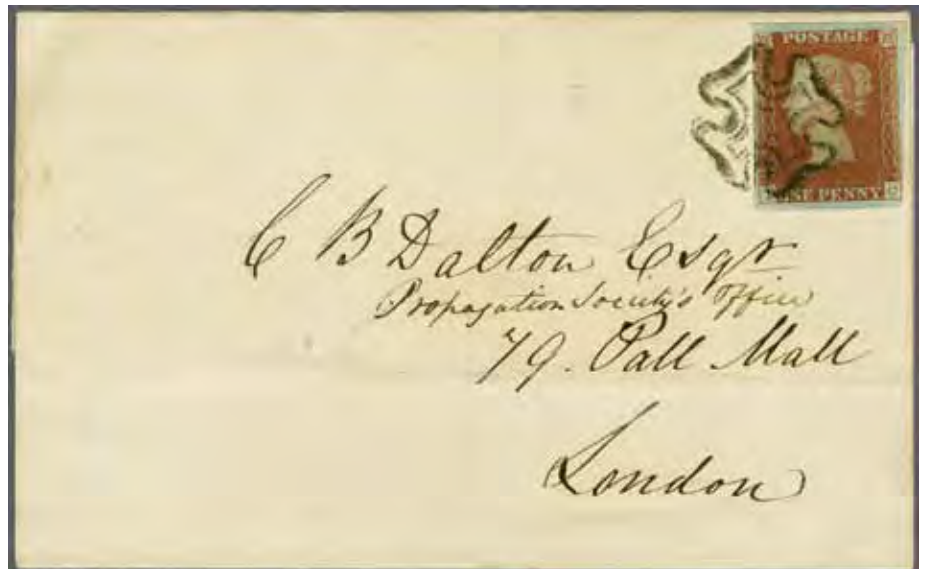 POSTAGE
ONE PENNY
C B Dalton Esqr
Propagation Society's Office
79. Pall Mall
London